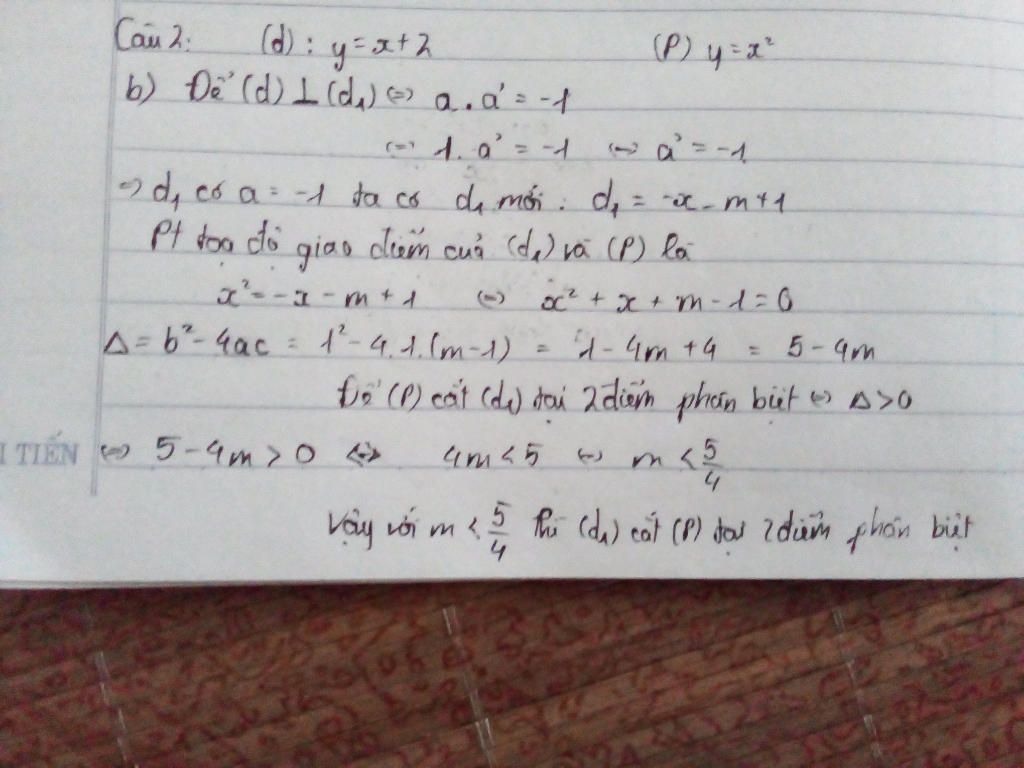 Câu 2: (d): y = x + 2 (P) y = x²
b) Để (d) ⊥ (d₁) ⇔ a . a' = -1
⇔ 1. a' = -1 ⇔ a' = -1
⇒ d₁ có a = -1 ta có d₁ mới: d₁ = -x - m + 1
Pt tọa độ giao điểm của (d₁) và (P) là
x² = -x - m + 1 ⇔ x² + x + m - 1 = 0
Δ = b² - 4ac = 1² - 4.1.(m-1) = 1 - 4m + 4 = 5 - 4m
Để (P) cắt (d₁) tại 2 điểm phân biệt ⇔ Δ > 0
I TIẾN ⇔ 5 - 4m > 0 ⇔ 4m < 5 ⇔ m < 5/4
Vậy với m < 5/4 thì (d₁) cắt (P) tại 2 điểm phân biệt